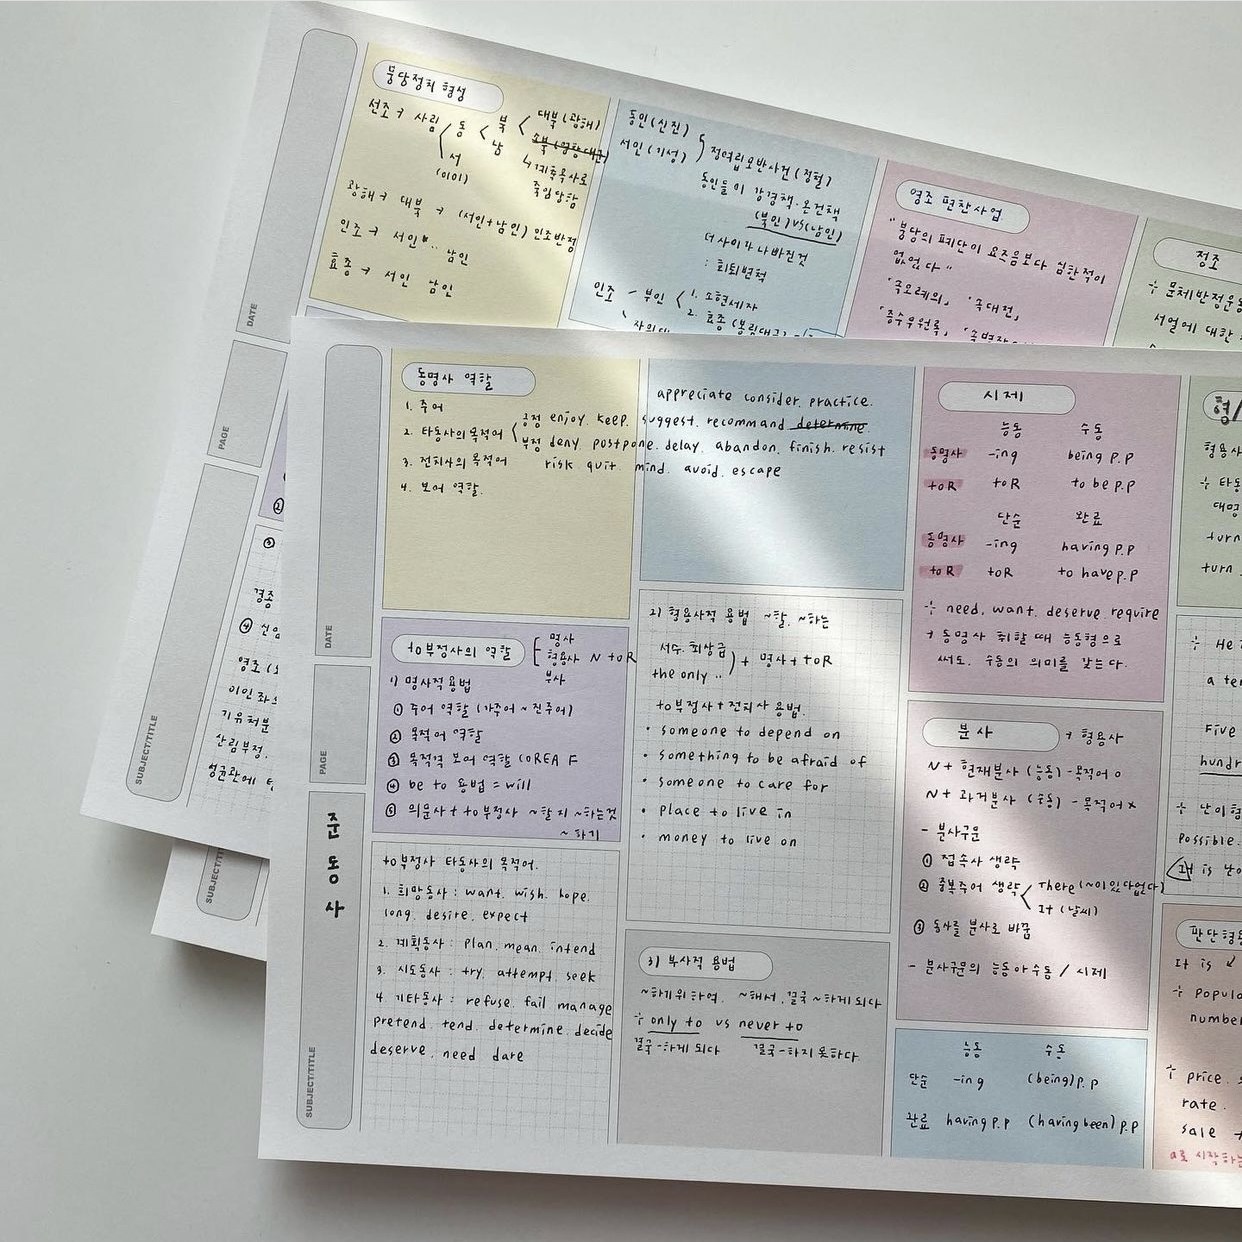 붕당정치 형성
선조 → 사림
동
서
(이이)
북
남
대북 (광해)
소북 (영창대군)
↳ 기축옥사로
죽임당함
광해 → 대북 → (서인+남인) 인조반정
인조 → 서인 남인
효종 → 서인 남인
동인 (신진)
서인 (기성)
정여립모반사건 (정철)
동인들이 강경책·온건책
(북인) vs (남인)
더 사이가 나빠진것
인조 -
1. 소현세자
2. 효종 (봉림대군)
영조 편찬사업
"붕당의 폐단이 요즈음보다 심한적이
없었다"
「속오례의」 「속대전」
정조
÷ 문체반정운동
서얼에 대한
DATE
PAGE
SUBJECT/TITLE
②
③
경종
④
영조
기유처분
산림부정.
성균관에
SUBJECT/TI
DATE
PAGE
준동사
SUBJECT/TITLE
동명사 역할
1. 주어
2. 타동사의 목적어
긍정 enjoy. keep. suggest. recommand determine
부정 deny. postpone. delay. abandon. finish. resist
3. 전치사의 목적어 risk quit. mind. avoid. escape
4. 보어 역할.
appreciate consider. practice.
to부정사의 역할
명사
형용사 N + to R
부사
1) 명사적용법
① 주어 역할 (가주어 ~ 진주어)
② 목적어 역할
③ 목적격 보어 역할 COREA F
④ be to 용법 = will
⑤ 의문사 + to부정사 ~할지 ~하는것
~하기
to부정사 타동사의 목적어.
1. 희망동사 : want. wish. hope.
long. desire. expect
2. 계획동사 : plan. mean. intend
3. 시도동사 : try. attempt. seek
4. 기타동사 : refuse. fail manage
pretend. tend. determine. decide
deserve. need dare
2) 형용사적 용법 ~할. ~하는
서수. 최상급
the only ..
+ 명사 + to R
to부정사 + 전치사 용법.
• someone to depend on
• something to be afraid of
• someone to care for
• place to live in
• money to live on
3) 부사적 용법
~하기위하여. ~해서. 결국 ~하게 되다
÷ only to vs never to
결국 ~하게 되다 결국 ~하지 못하다.
시제
능동 수동
동명사 -ing being p.p
to R to R to be p.p
단순 완료
동명사 -ing having p.p
to R to R to have p.p
÷ need. want. deserve require
+ 동명사 취할 때 능동형으로
써도. 수동의 의미를 갖는다.
분사 → 형용사
N + 현재분사 (능동) - 목적어 o
N + 과거분사 (수동) - 목적어 x
- 분사구문
① 접속사 생략
② 중복주어 생략
There (~이 있다없다)
It (날씨)
③ 동사를 분사로 바꿈
- 분사구문의 능동 or 수동 / 시제
능동 수동
단순 -ing (being) p.p
완료 having p.p (having been) p.p
형/
형용사
÷ 타동
turn
turn
÷ He
a te
Five
hundr
÷ 난이형
possible.
It is 난이
판단형용
It is
÷ popula
number
÷ price.
rate.
sale
a로 시작하는